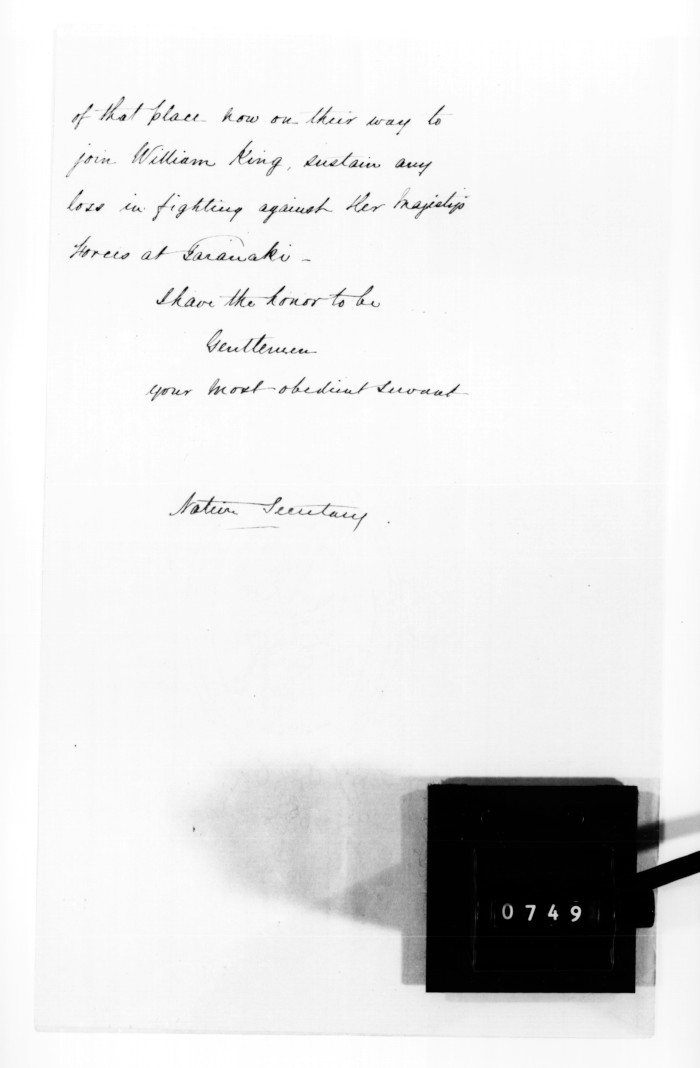 of that place now on their way to
join William King, sustain any
loss in fighting against Her Majesty's
Forces at Taranaki –
I have the honor to be
Gentlemen
your most obedient servant
Native Secretary.
0749